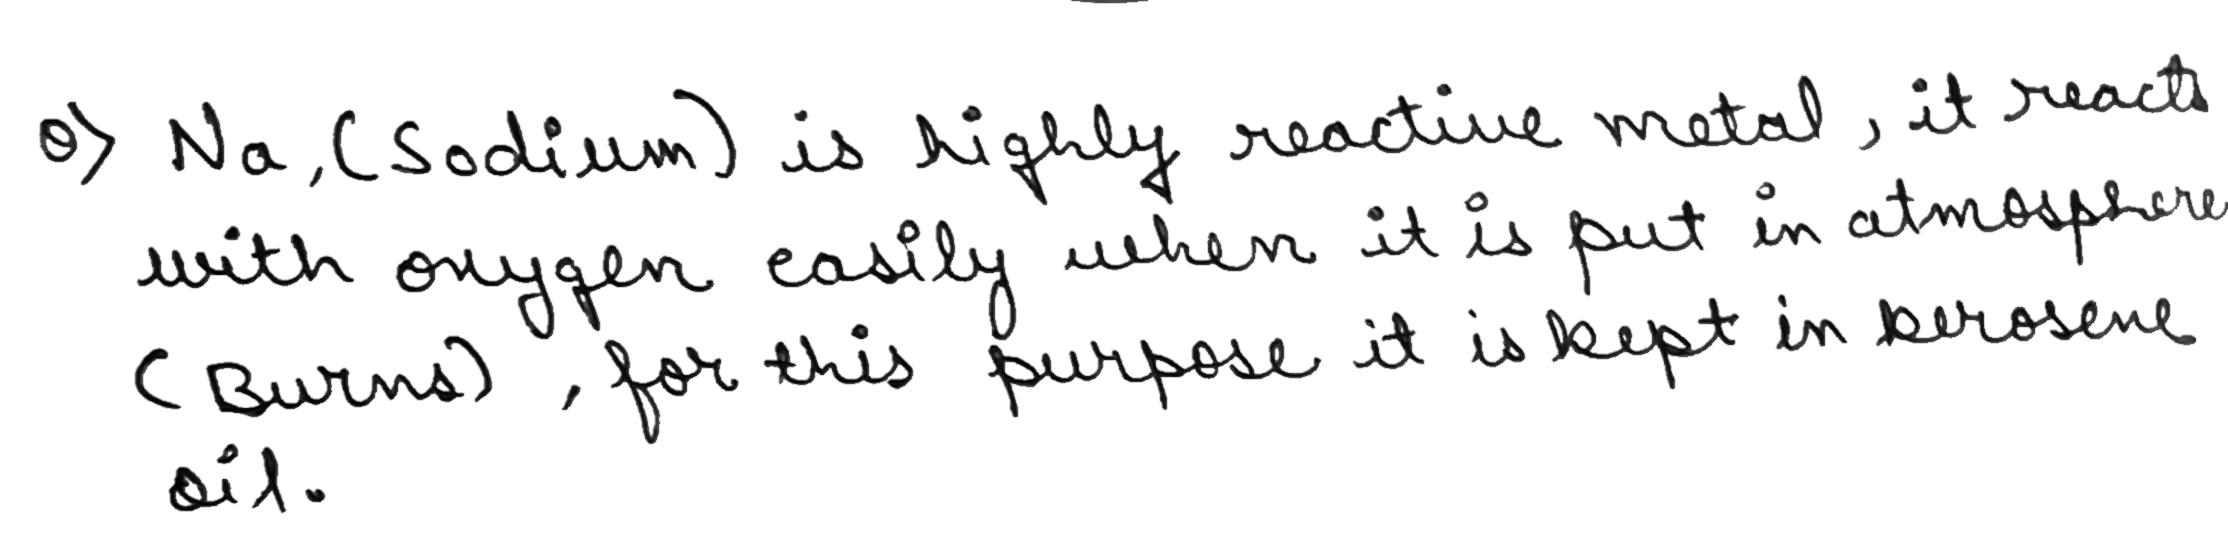 0) Na, (Sodium) is highly reactive metal, it reacts
with oxygen easily when it is put in atmosphere
(Burns), for this purpose it is kept in kerosene
oil.